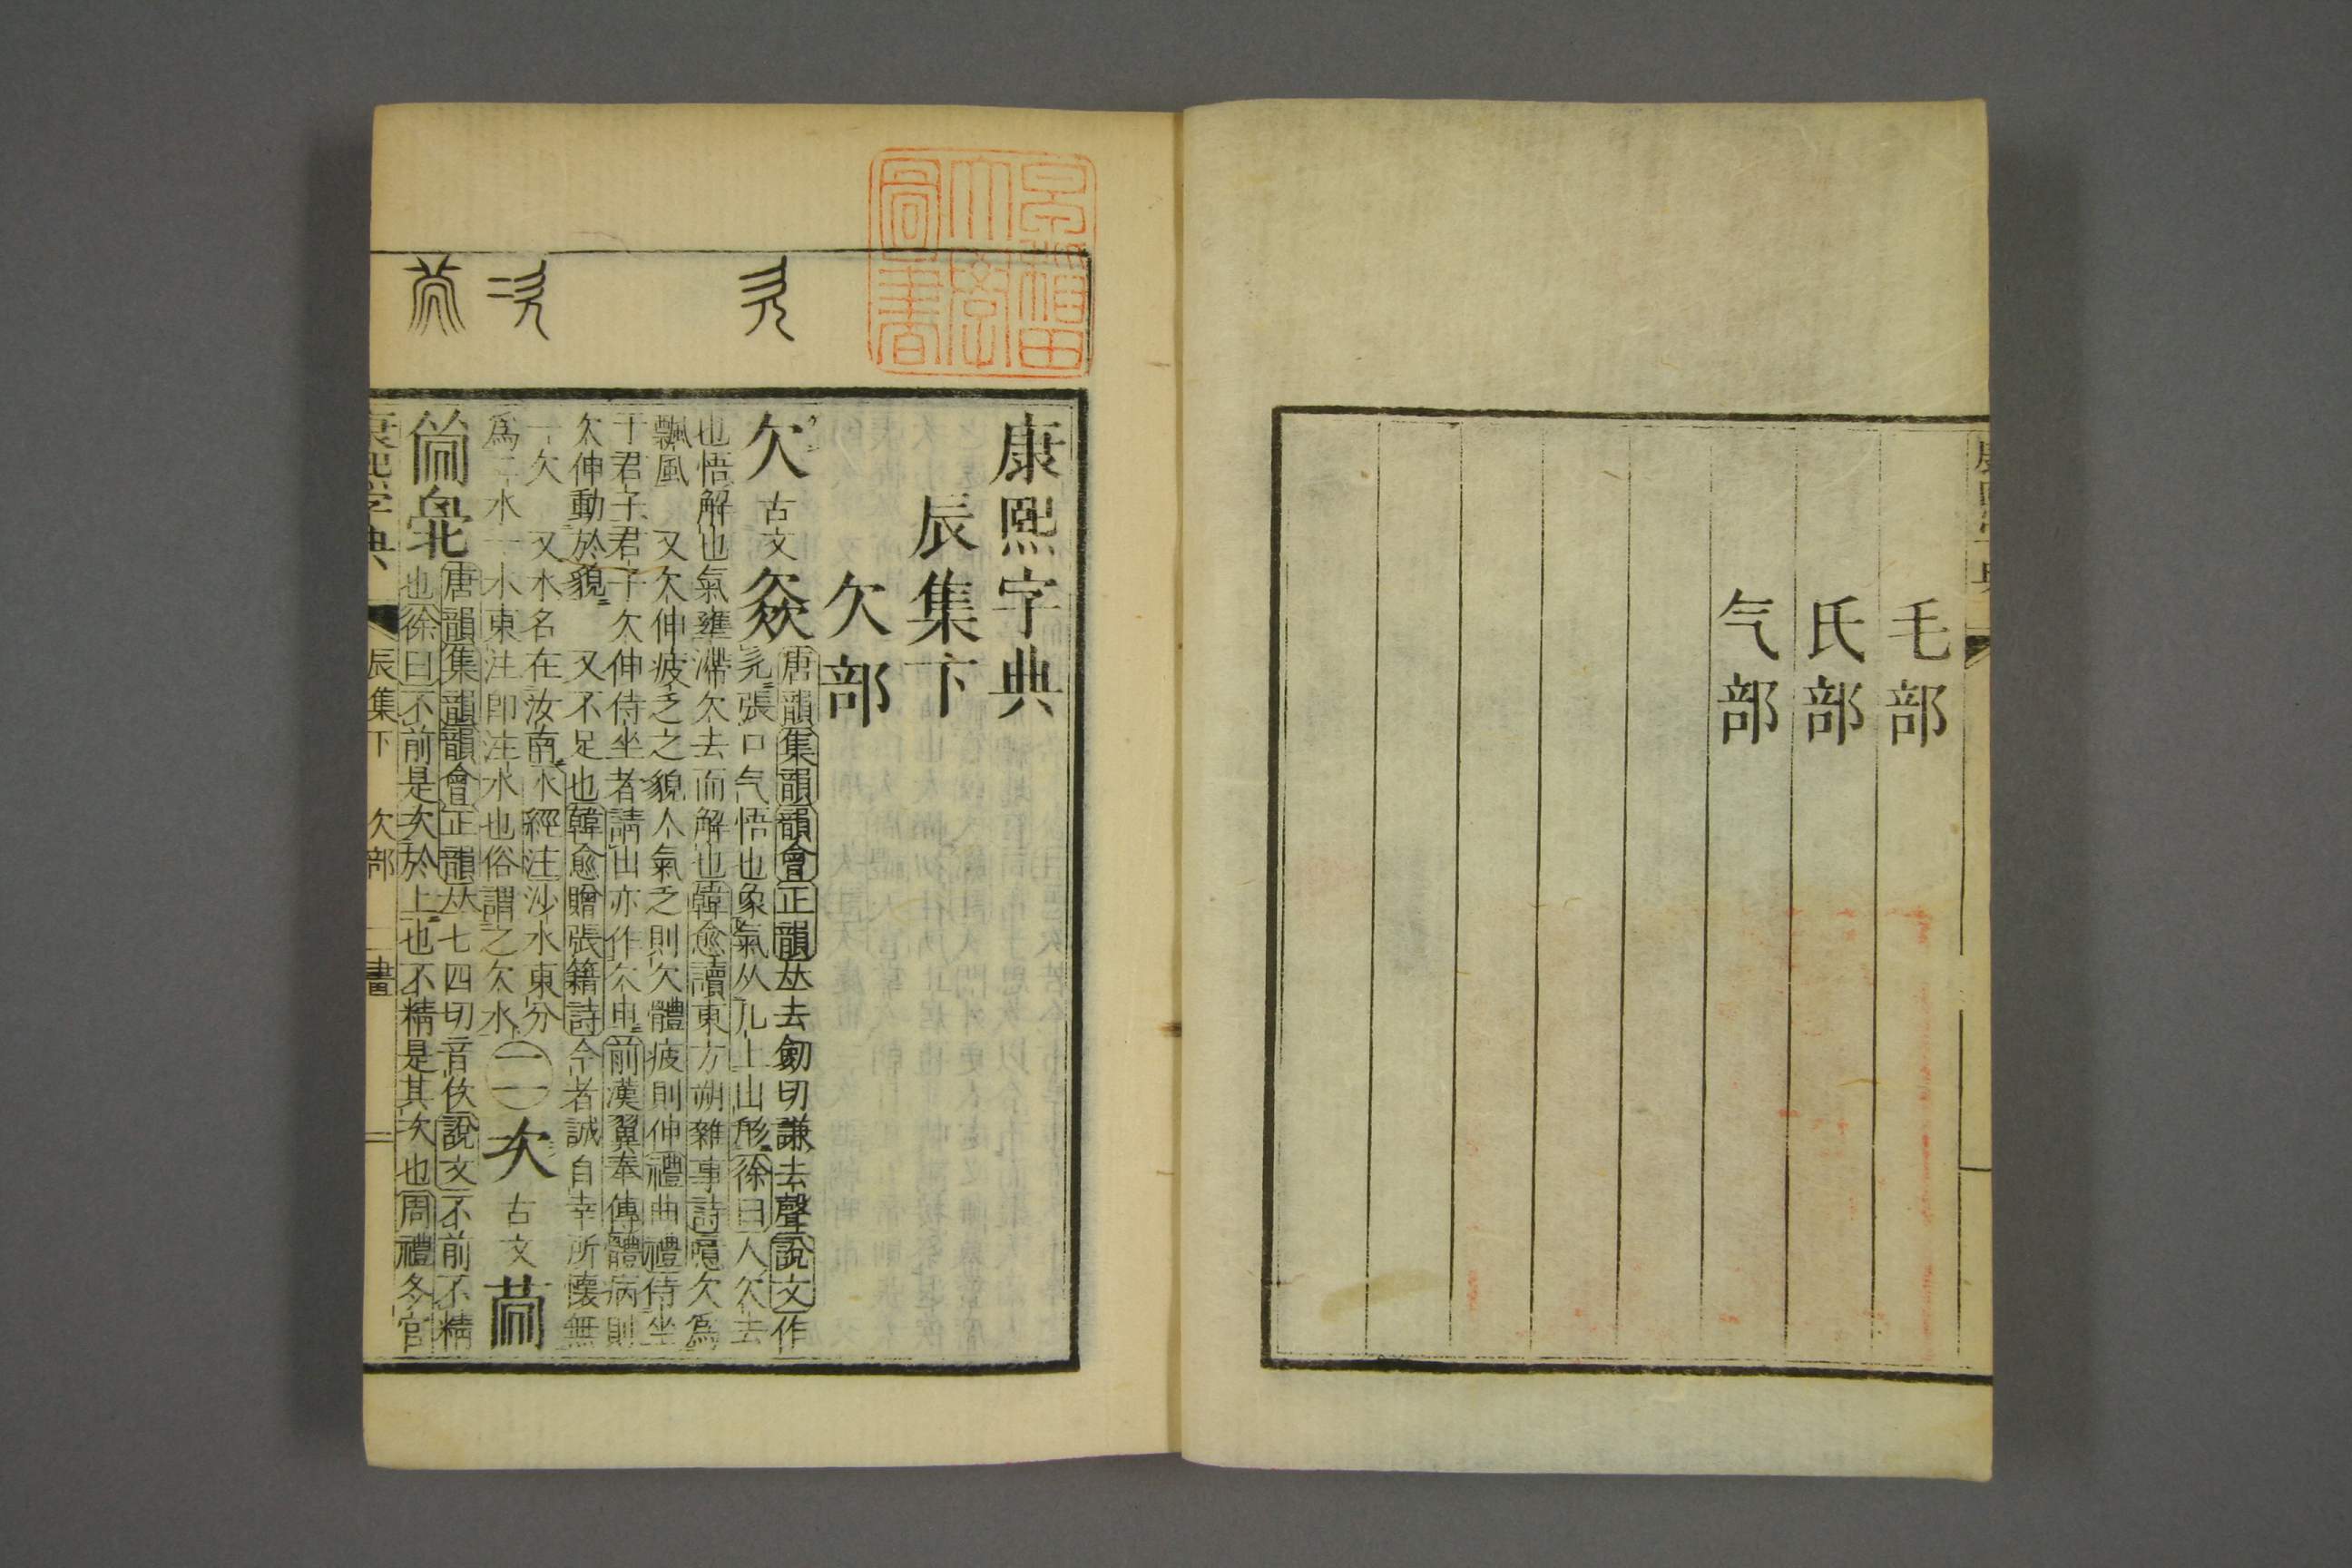 毛部
氏部
气部
早稻田
大學
圖書
康熙字典
辰集下
欠部
欠 古文
唐韻集韻韻會正韻𠀤去劒切謙去聲說文作
張口气悟也象氣从儿上出形徐曰人欠去
也悟解也氣壅滯欠去而解也韓愈讀東方朔雜事詩噫欠爲
飄風 又欠伸疲乏之貌人氣乏則欠體疲則伸禮曲禮侍坐
于君子君子欠伸侍坐者請出亦作欠申前漢翼奉傳體病則
欠伸動於貌 又不足也韓愈贈張籍詩今者誠自幸所懷無
一欠 又水名在汝南水經注沙水東分
爲二水一水東注卽注水也俗謂之欠水
二 次 古文
唐韻集韻韻會正韻𠀤七四切音佽說文不前不精
也徐曰不前是次於上也不精是其次也周禮冬官
康熙字典 辰集下 欠部 二畫 二